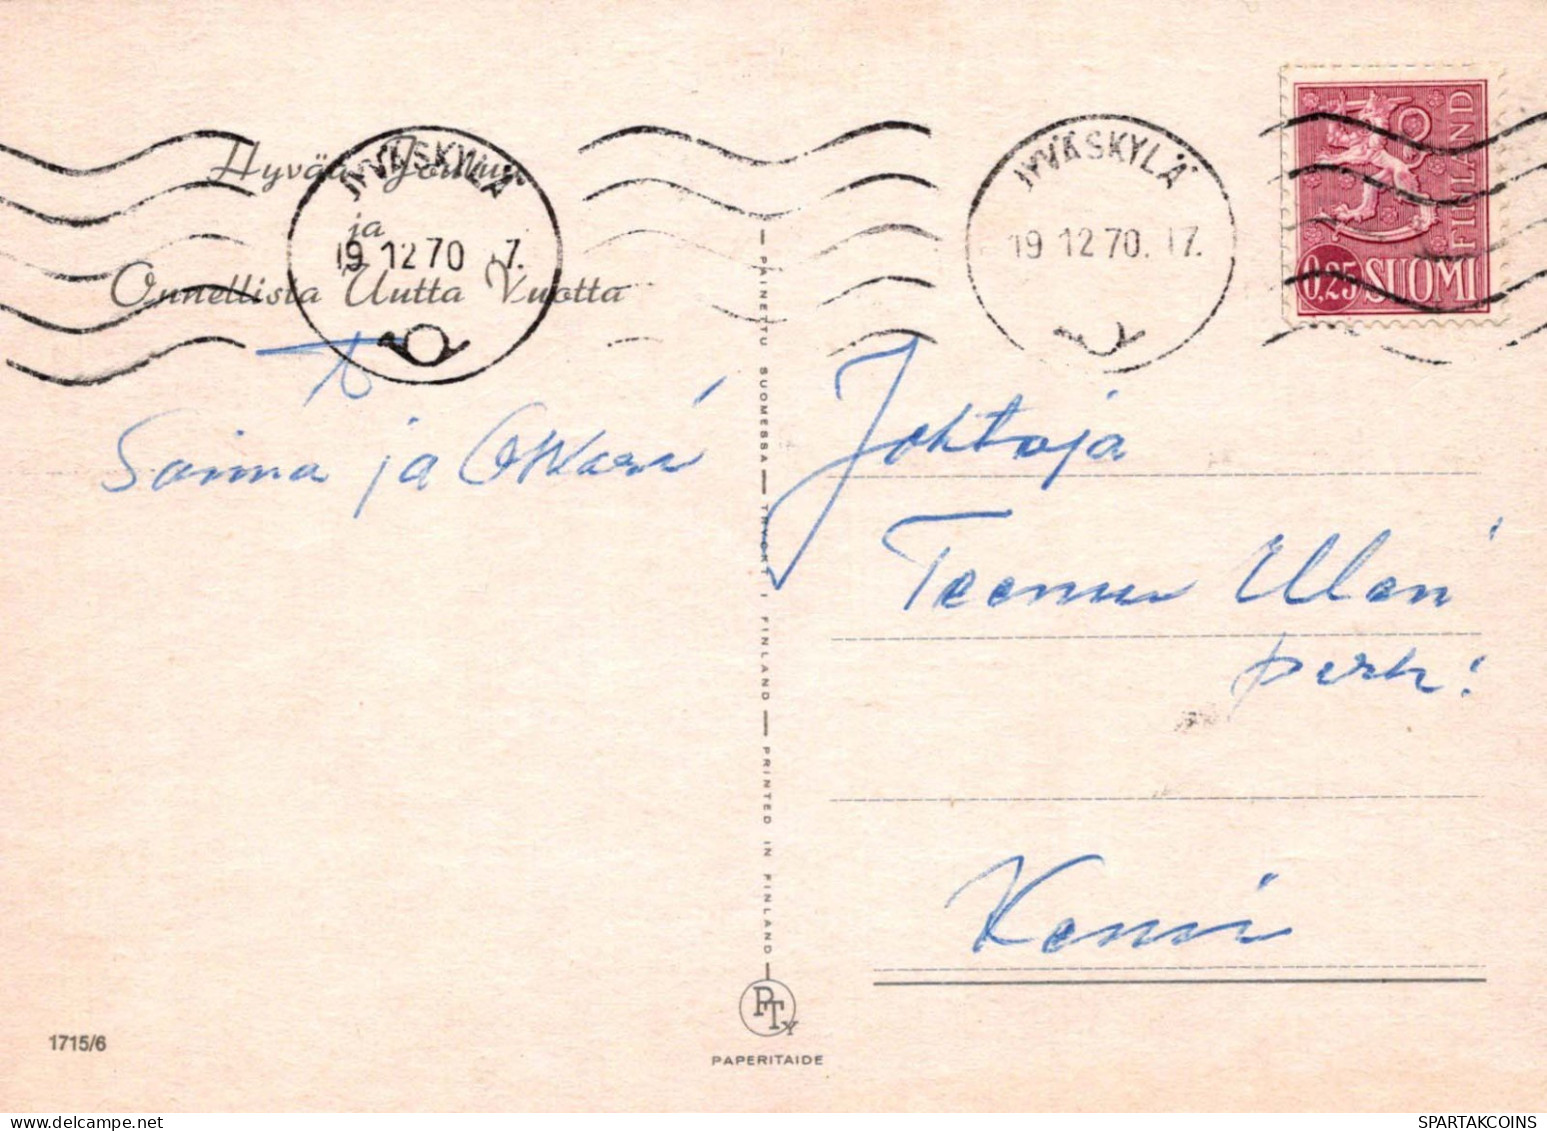 Hyvää Joulua
ja
Onnellista Uutta Vuotta
JYVÄSKYLÄ
19.12.70. 17.
JYVÄSKYLÄ
19.12.70. 17.
0,25 SUOMI
FINLAND
T
Saima ja Oskari
Johtaja
Teemu Ulen
perh:
Kemi
PAINETTU SUOMESSA — TRYCKT I FINLAND — PRINTED IN FINLAND
PTy
PAPERITAIDE
1715/6
SPARTAKCOINS
WWW.DELCAMPE.NET